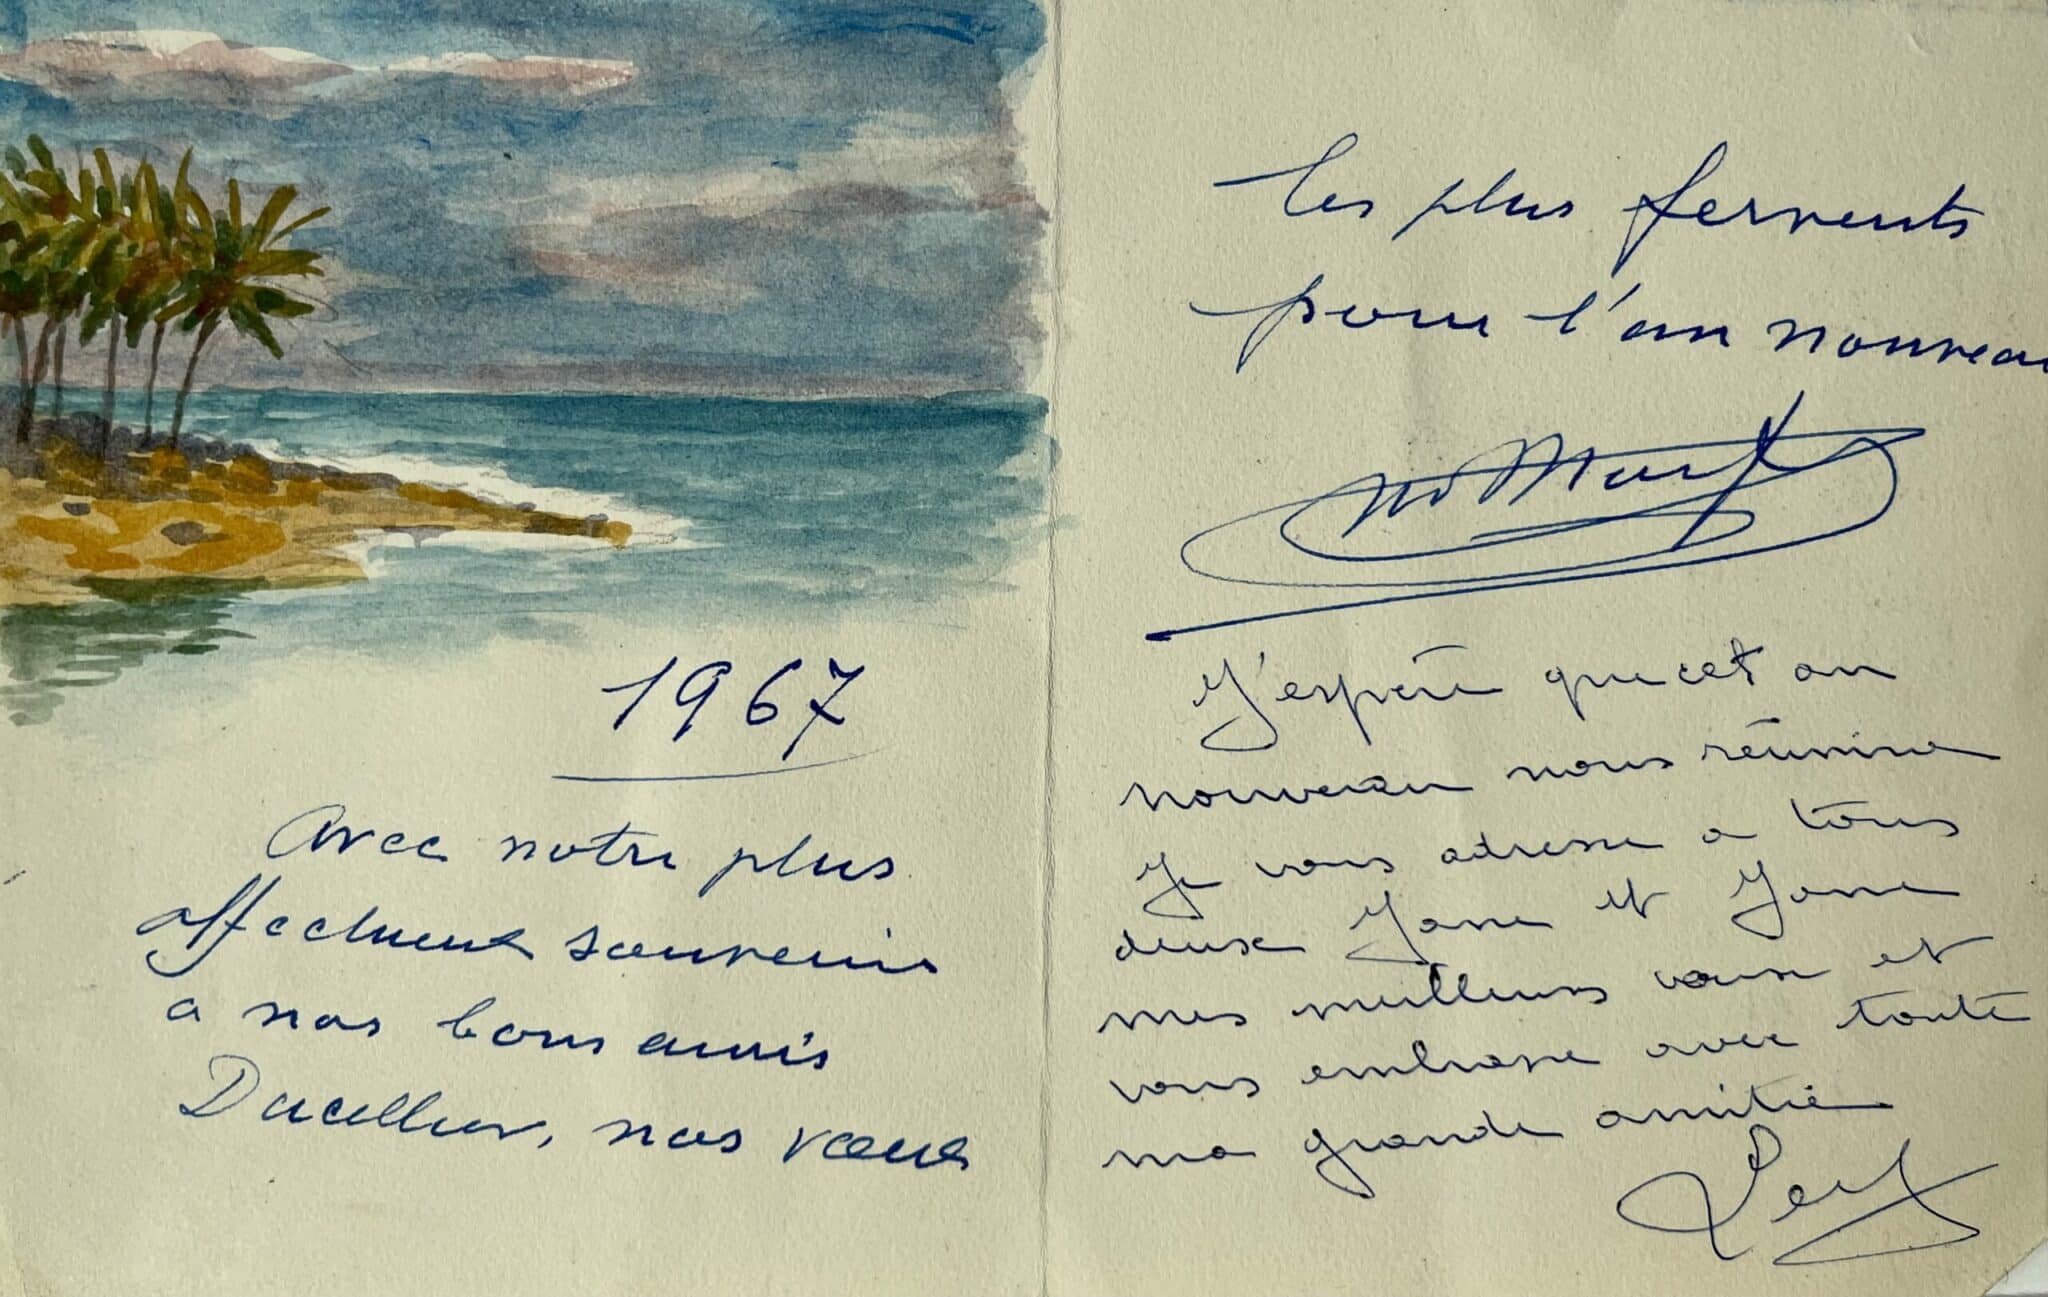 1967
Avec notre plus
affectueux souvenir
a nos bons amis
Ducellier, nos vœux
les plus fervents
pour l'an nouveau
J'espère que cet an
nouveau nous réunira
Je vous adresse a tous
deux Jane et Jane
mes meilleurs voeux et
vous embrasse avec toute
ma grande amitié